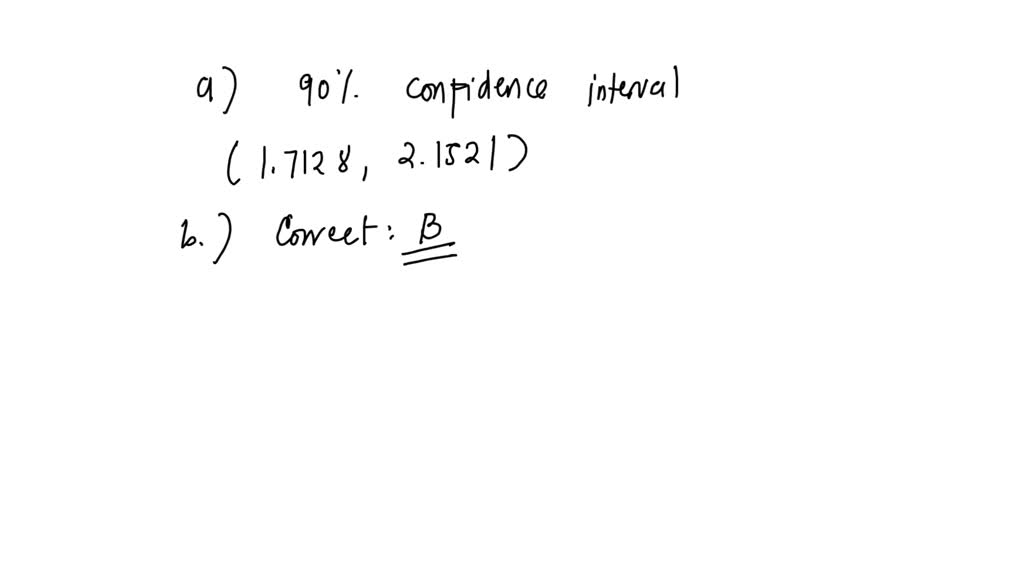 a) 90% confidence interval
(1.7128, 2.1521)
b.) Correct: B